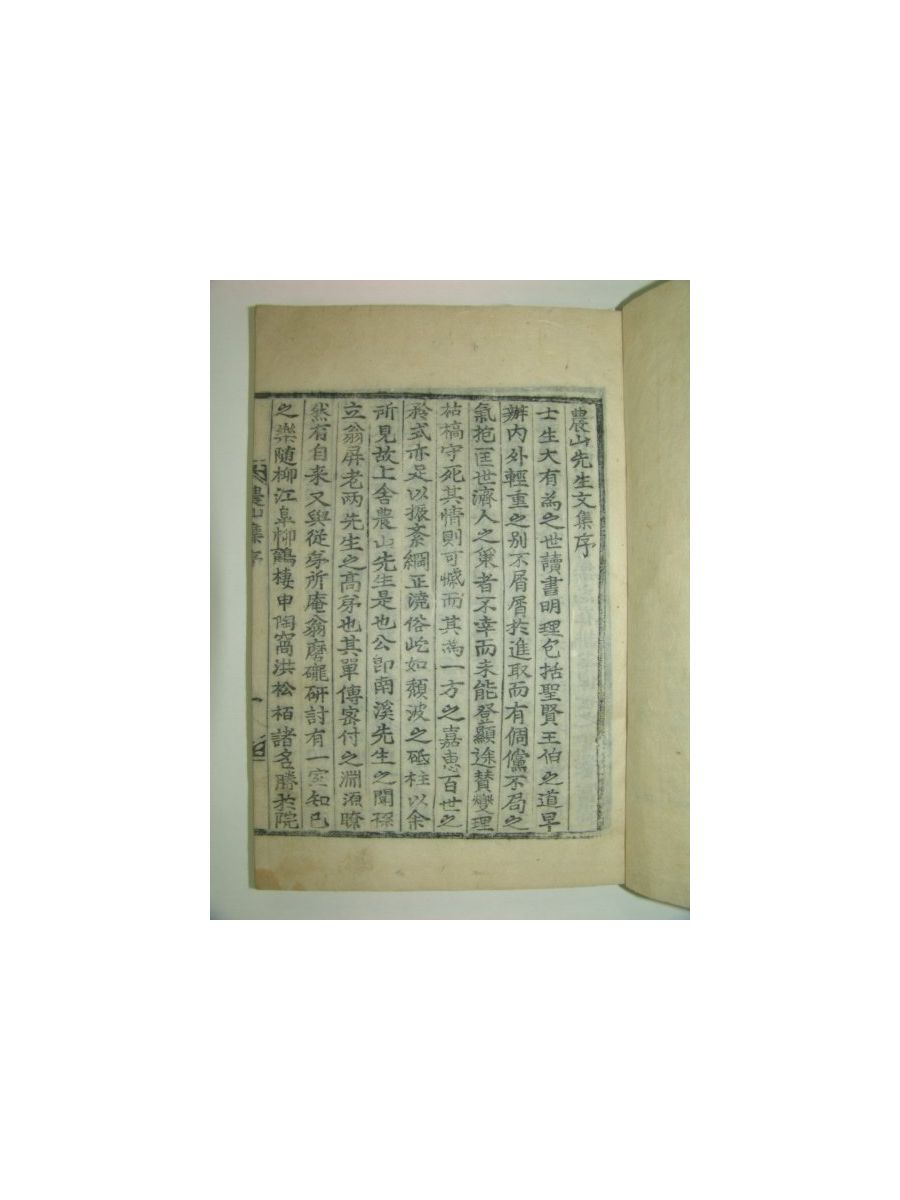 農山先生文集序
士生大有為之世讀書明理包括聖賢王伯之道早
辦內外輕重之別不屑屑於進取而有倜儻不局之
氣抱匡世濟人之策者不幸而未能登顯途賛爕理
枯槁守死其情則可慽而其為一方之嘉惠百世之
矜式亦足以振紊綱正澆俗屹如頹波之砥柱以余
所見故上舍農山先生是也公卽南溪先生之聞孫
立翁屏老兩先生之高弟也其單傳密付之淵源暸
然有自来又與從弟所庵翁磨礲研討有一室知己
之樂隨柳江皐柳鶴棲申陶窩洪松栢諸名勝於院
農山集序
一